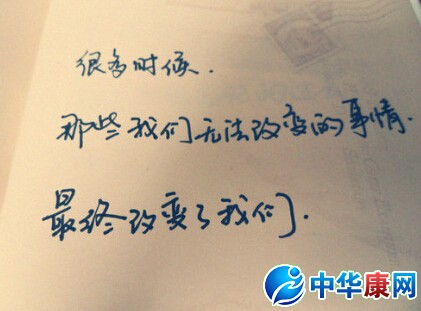 很多时候.
那些我们无法改变的事情.
最终改变了我们.
中华康网